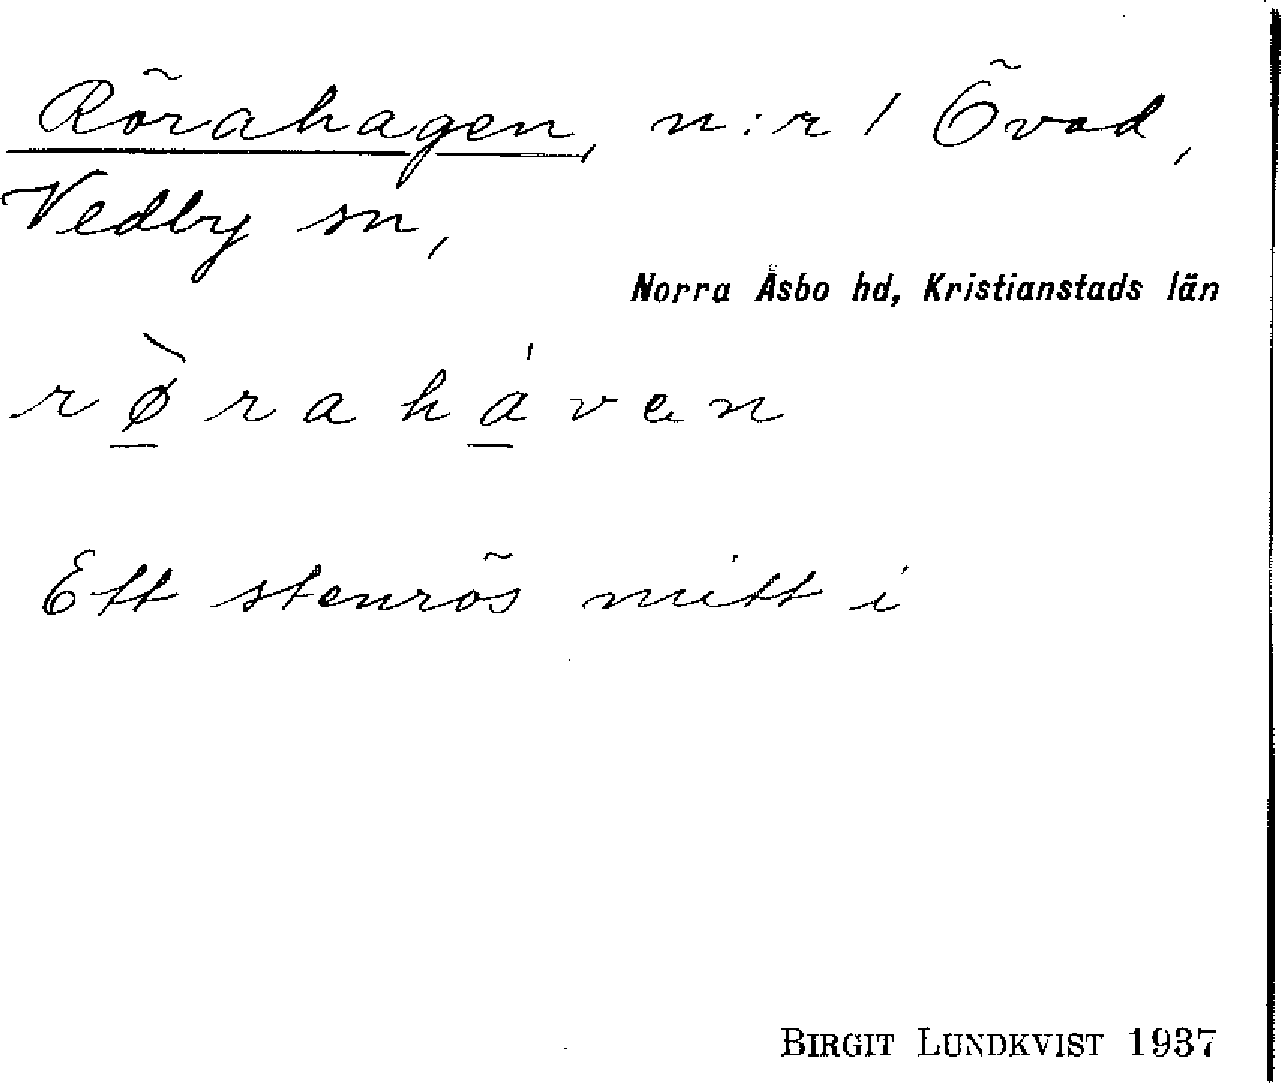 Rörahagen, n:r 1 Övad,
Vedby sn,
Norra Åsbo hd, Kristianstads län
rø̀rahávən
Ett stenrös mitt i
BIRGIT LUNDKVIST 1937